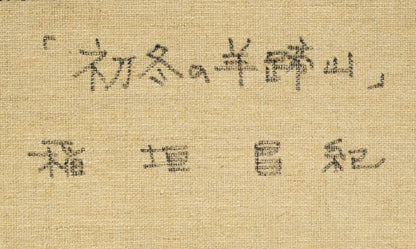 「初冬の羊蹄山」
稲垣昌紀